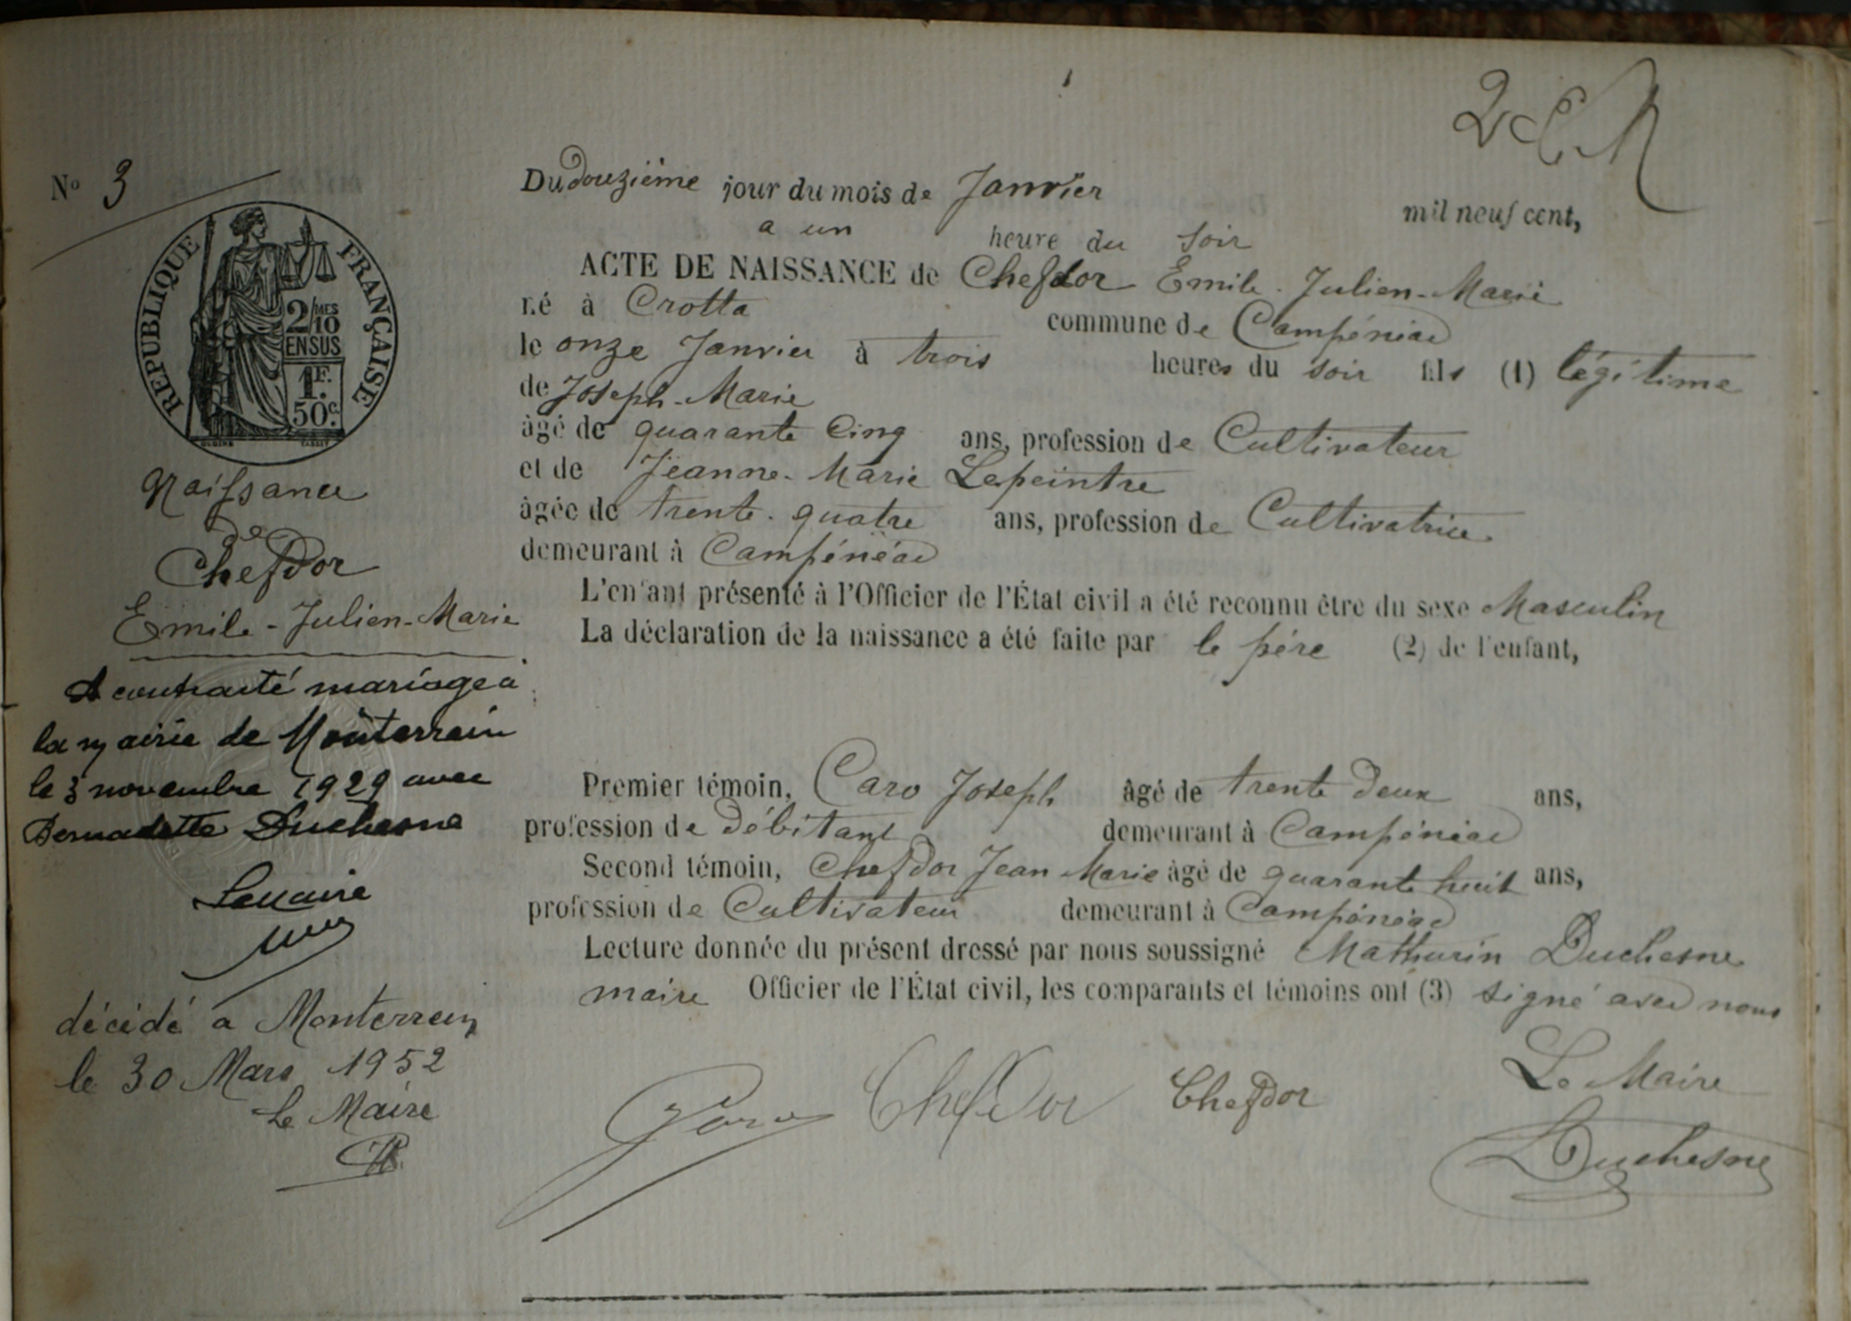 2 e R
N° 3
REPUBLIQUE FRANÇAISE
2/MES
10
ENSUS
1F.
50c.
Naissance
de
Chefdor
Emile - Julien - Marie
A contracté mariage à
la mairie de Monterrein
le 3 novembre 1929 avec
Bernadette Duchesne
Le Maire
décédé à Monterrein
le 30 Mars 1952
Le Maire
Du douzième jour du mois de Janvier mil neuf cent,
a un heure du soir
ACTE DE NAISSANCE de Chefdor Emile - Julien - Marie
né à Crotta commune de Campénéac
le onze Janvier à trois heures du soir fils (1) légitime
de Joseph - Marie
âgé de quarante cinq ans, profession de Cultivateur
et de Jeanne - Marie Lepeintre
âgée de trente - quatre ans, profession de Cultivatrice
demeurant à Campénéac
L'enfant présenté à l'Officier de l'État civil a été reconnu être du sexe Masculin
La déclaration de la naissance a été faite par le père (2) de l'enfant,
Premier témoin, Caro Joseph âgé de trente deux ans,
profession de débitant demeurant à Campénéac
Second témoin, Chefdor Jean Marie âgé de quarante huit ans,
profession de Cultivateur demeurant à Campénéac
Lecture donnée du présent dressé par nous soussigné Mathurin Duchesne
maire Officier de l'État civil, les comparants et témoins ont (3) signé avec nous
Caro Chefdor Chefdor Le Maire
Duchesne